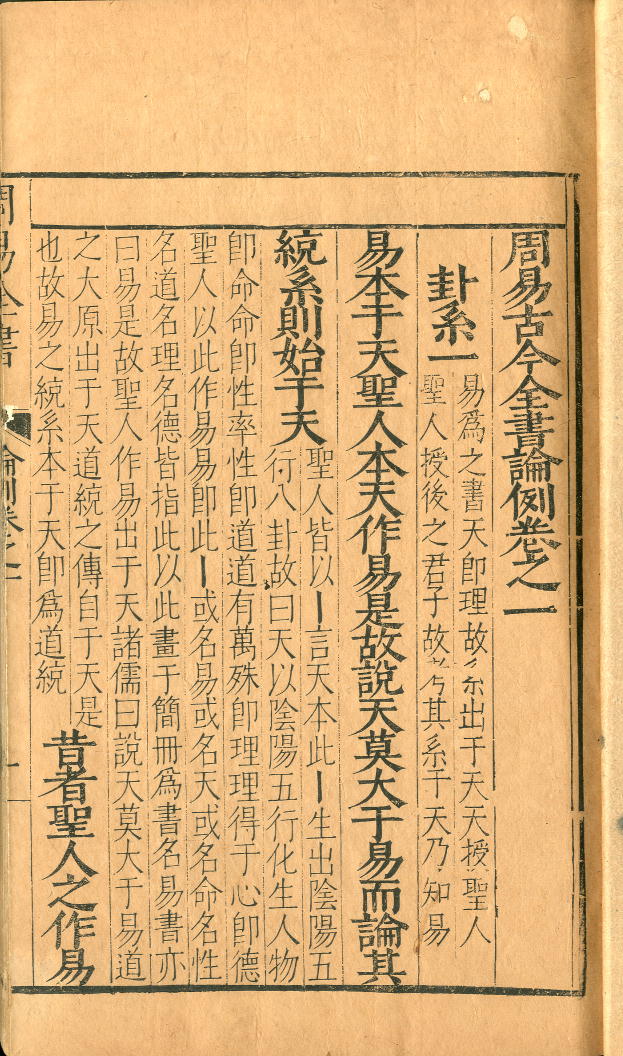 周易古今全書論例卷之一
卦系一
易爲之書天卽理故系出于天天授聖人
聖人授後之君子故考其系于天乃知易
易本于天聖人本天作易是故說天莫大于易而論其
統系則始于天
聖人皆以一言天本此一生出陰陽五
行八卦故曰天以陰陽五行化生人物
卽命命卽性率性卽道道有萬殊卽理理得于心卽德
聖人以此作易易卽此一或名易或名天或名命名性
名道名理名德皆指此以此畫于簡冊爲書名易書亦
曰易是故聖人作易出于天諸儒曰說天莫大于易道
之大原出于天道統之傳自于天是
也故易之統系本于天卽爲道統
昔者聖人之作易
周易全書
論例卷之一
一